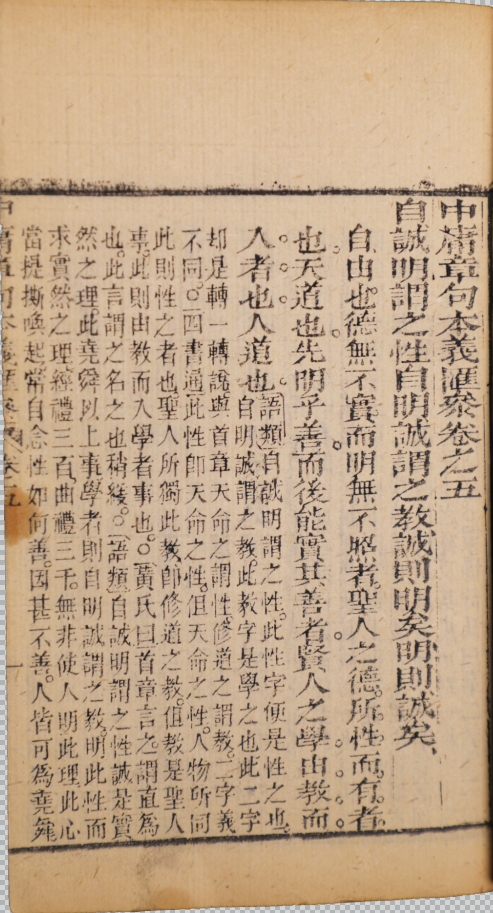 中庸章句本義匯叅卷之五
自誠明謂之性自明誠謂之教誠則明矣明則誠矣
自由也德無不實而明無不照者聖人之德所性而有者
也天道也先明乎善而後能實其善者賢人之學由教而
入者也人道也
語類自誠明謂之性此性字便是性之也
自明誠謂之教此教字是學之也此二字
却是轉一轉說與首章天命之謂性修道之謂教二字義
不同○四書通此性卽天命之性但天命之性人物所同
此則性之者也聖人所獨此教卽修道之教但教是聖人
事此則由教而入學者事也○黃氏曰首章言之謂直爲
也此言謂之名之也稍緩○語類自誠明謂之性誠是實
然之理此堯舜以上事學者則自明誠謂之教明此性而
求實然之理經禮三百曲禮三千無非使人明此理此心
當提撕喚起常自念性如何善因甚不善人皆可爲堯舜
中庸章句本義匯叅 卷五 一